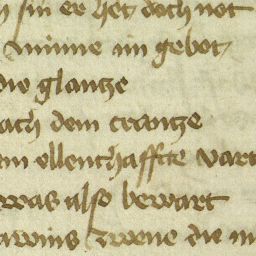 sin er het doch not
minne im gebot
die glantze
nach dem crantze
ellenthaffte vart
was also bewart
zwene die